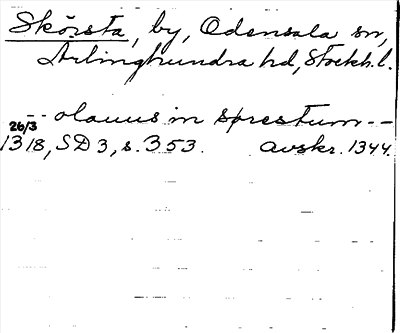 Skörsta, by, Odensala sn,
Ärlinghundra hd, Stockh. l.
-- olauus in sprestum --
26/3
1318, SD 3, s. 353. avskr. 1344.